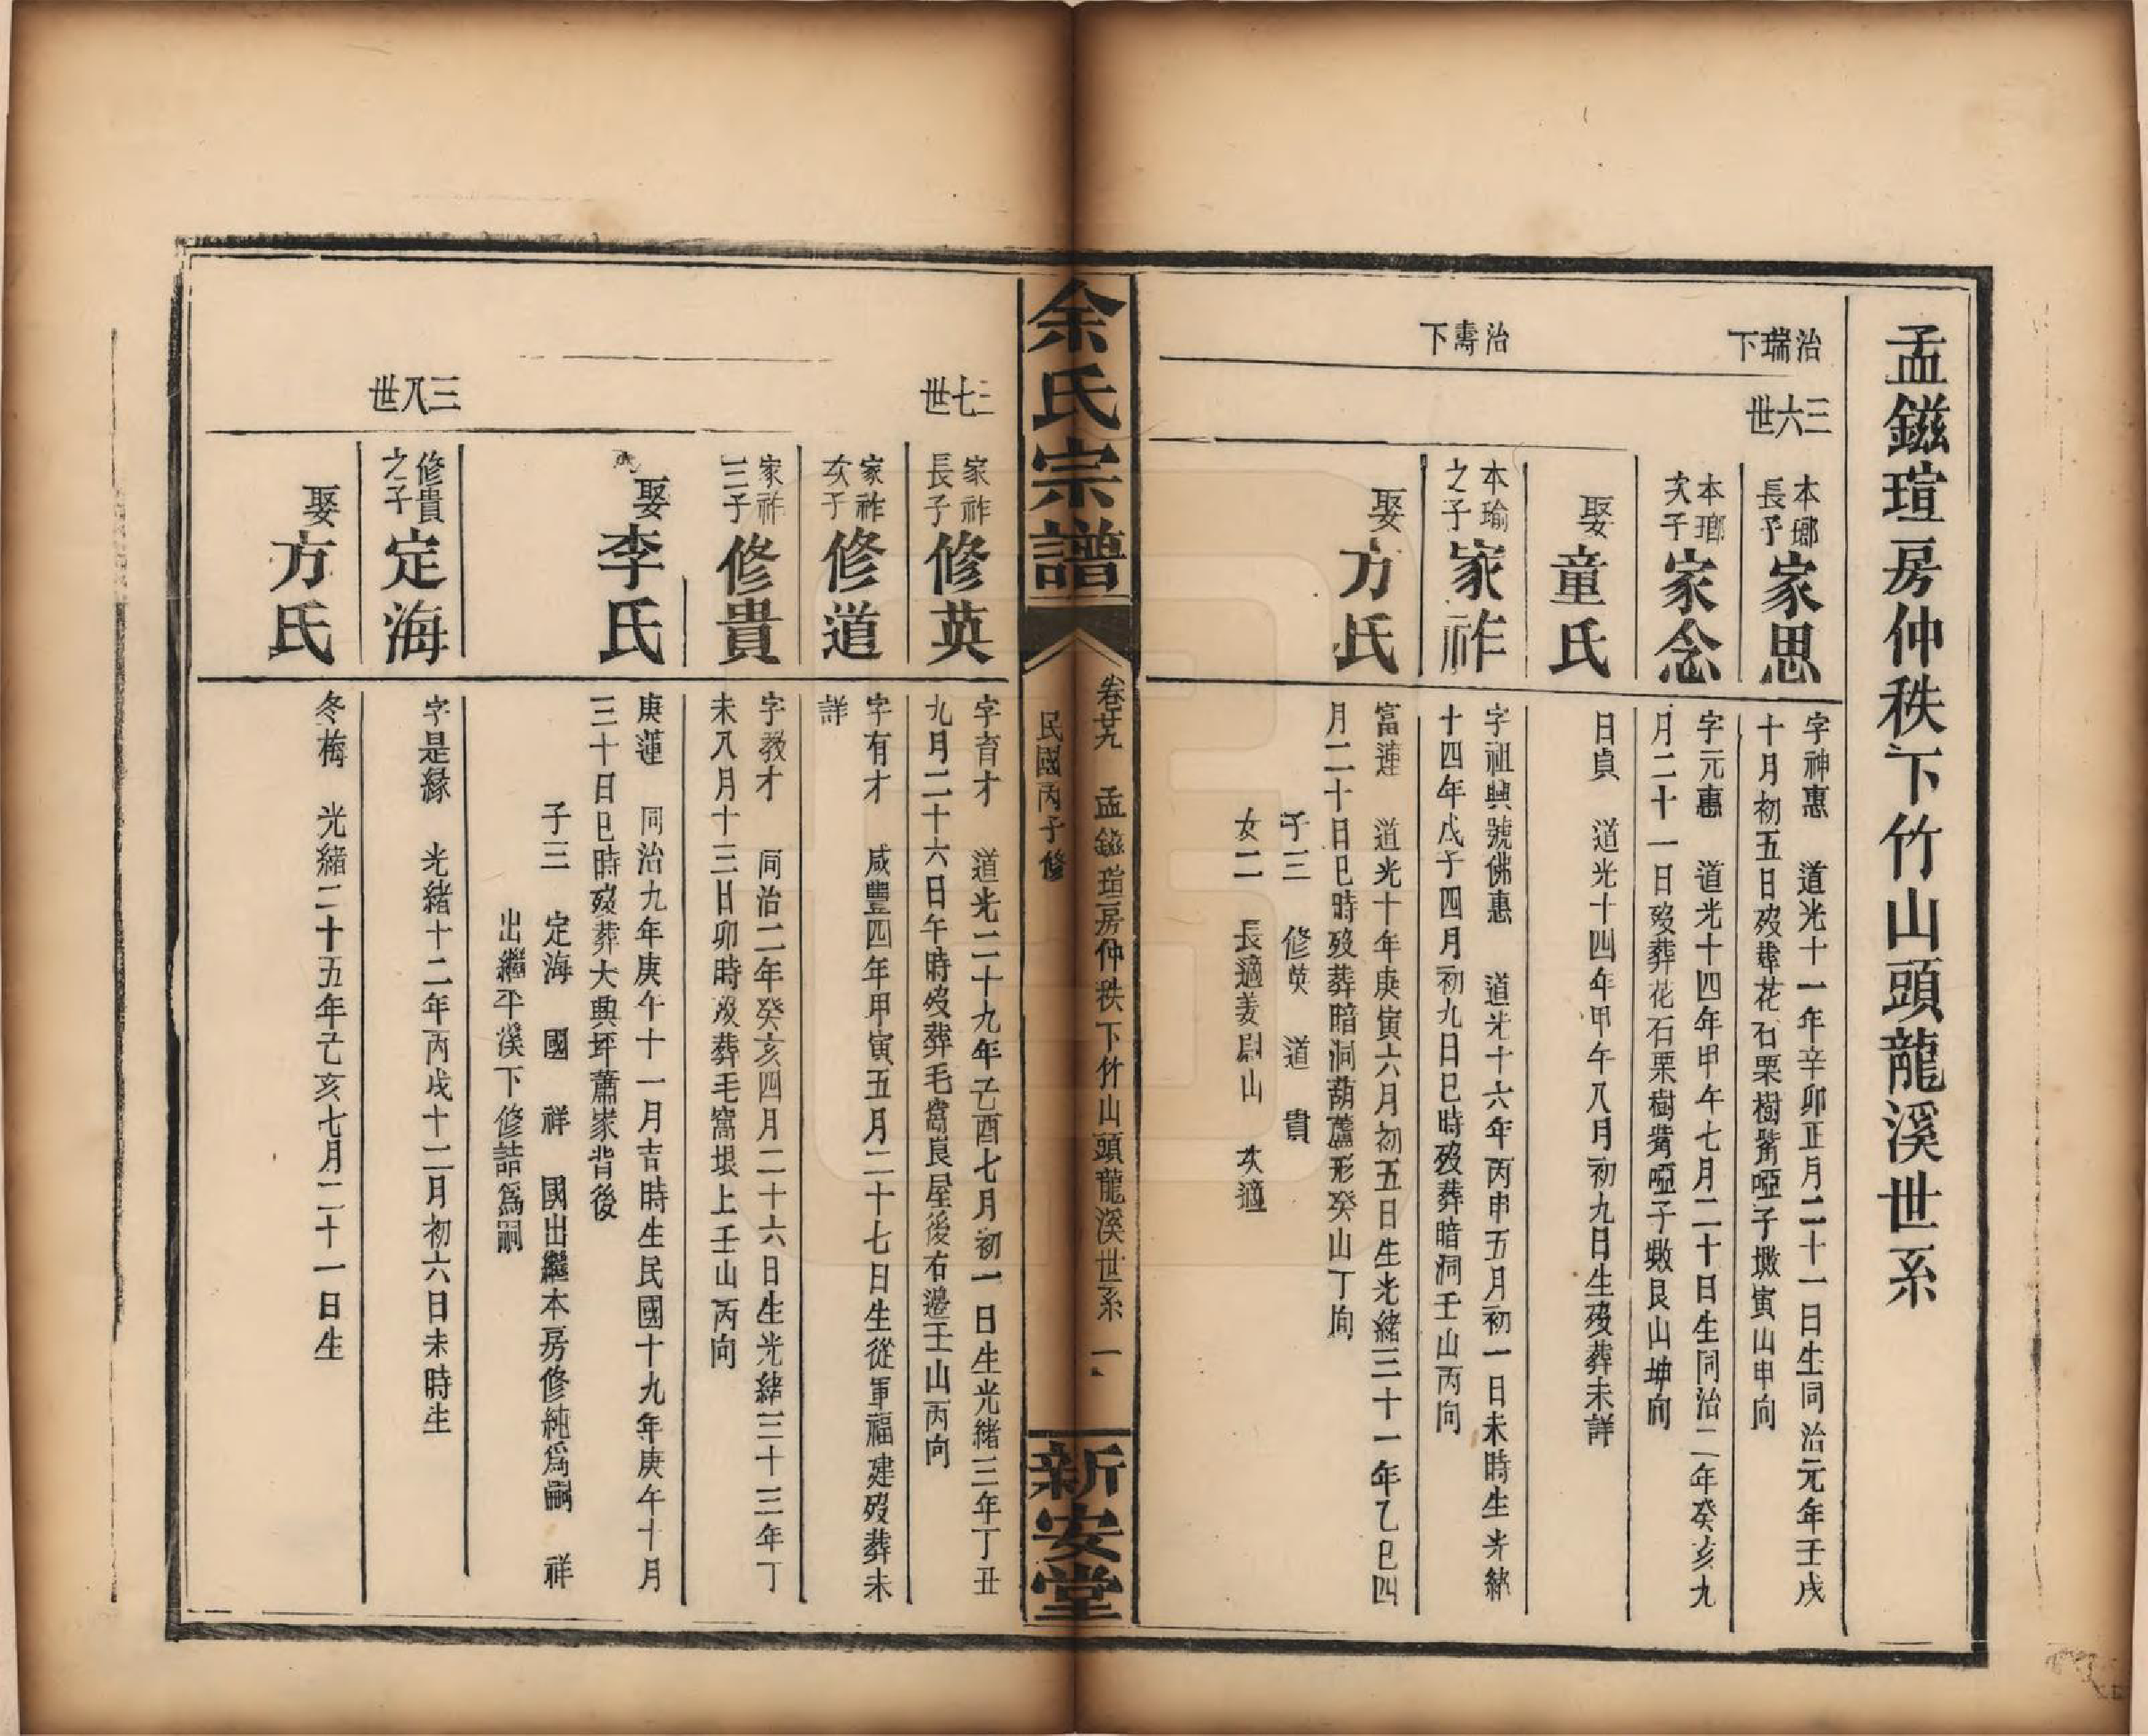 孟鎡瑄房仲秩下竹山頭龍溪世系
治瑞下
三六世
本瑯長子家思
字神惠 道光十一年辛卯正月二十一日生同治元年壬戌
十月初五日歿葬花石栗樹嘴啞子墩寅山申向
本瑯次子家念
字元惠 道光十四年甲午七月二十日生同治二年癸亥九
月二十一日歿葬花石栗樹嘴啞子墩艮山坤向
娶童氏
日貞 道光十四年甲午八月初九日生歿葬未詳
治壽下
本瑜之子家祚
字祖興號佛惠 道光十六年丙申五月初一日未時生光緒
十四年戊子四月初九日巳時歿葬暗洞壬山丙向
娶方氏
富蓮 道光十年庚寅六月初五日生光緒三十一年乙巳四
月二十日巳時歿葬暗洞葫蘆形癸山丁向
子三 修英 道 貴
女二 長適姜尉山 次適
余氏宗譜
卷廿九 孟鎡瑄房仲秩下竹山頭龍溪世系 一
民國丙子修
新安堂
三七世
家祚長子修英
字育才 道光二十九年己酉七月初一日生光緒三年丁丑
九月二十六日午時歿葬毛窩良屋後右邊壬山丙向
家祚次子修道
字有才 咸豐四年甲寅五月二十七日生從軍福建歿葬未
詳
家祚三子修貴
字教才 同治二年癸亥四月二十六日生光緒三十三年丁
未八月十三日卯時歿葬毛窩垠上壬山丙向
娶李氏
庚蓮 同治九年庚午十一月吉時生民國十九年庚午十月
三十日巳時歿葬大興坪蕭家背後
子三 定海 國 祥 國出繼本房修純爲嗣 祥
出繼平溪下修詰爲嗣
三八世
修貴之子定海
字是緣 光緒十二年丙戌十二月初六日未時生
娶方氏
冬梅 光緒二十五年己亥七月二十一日生